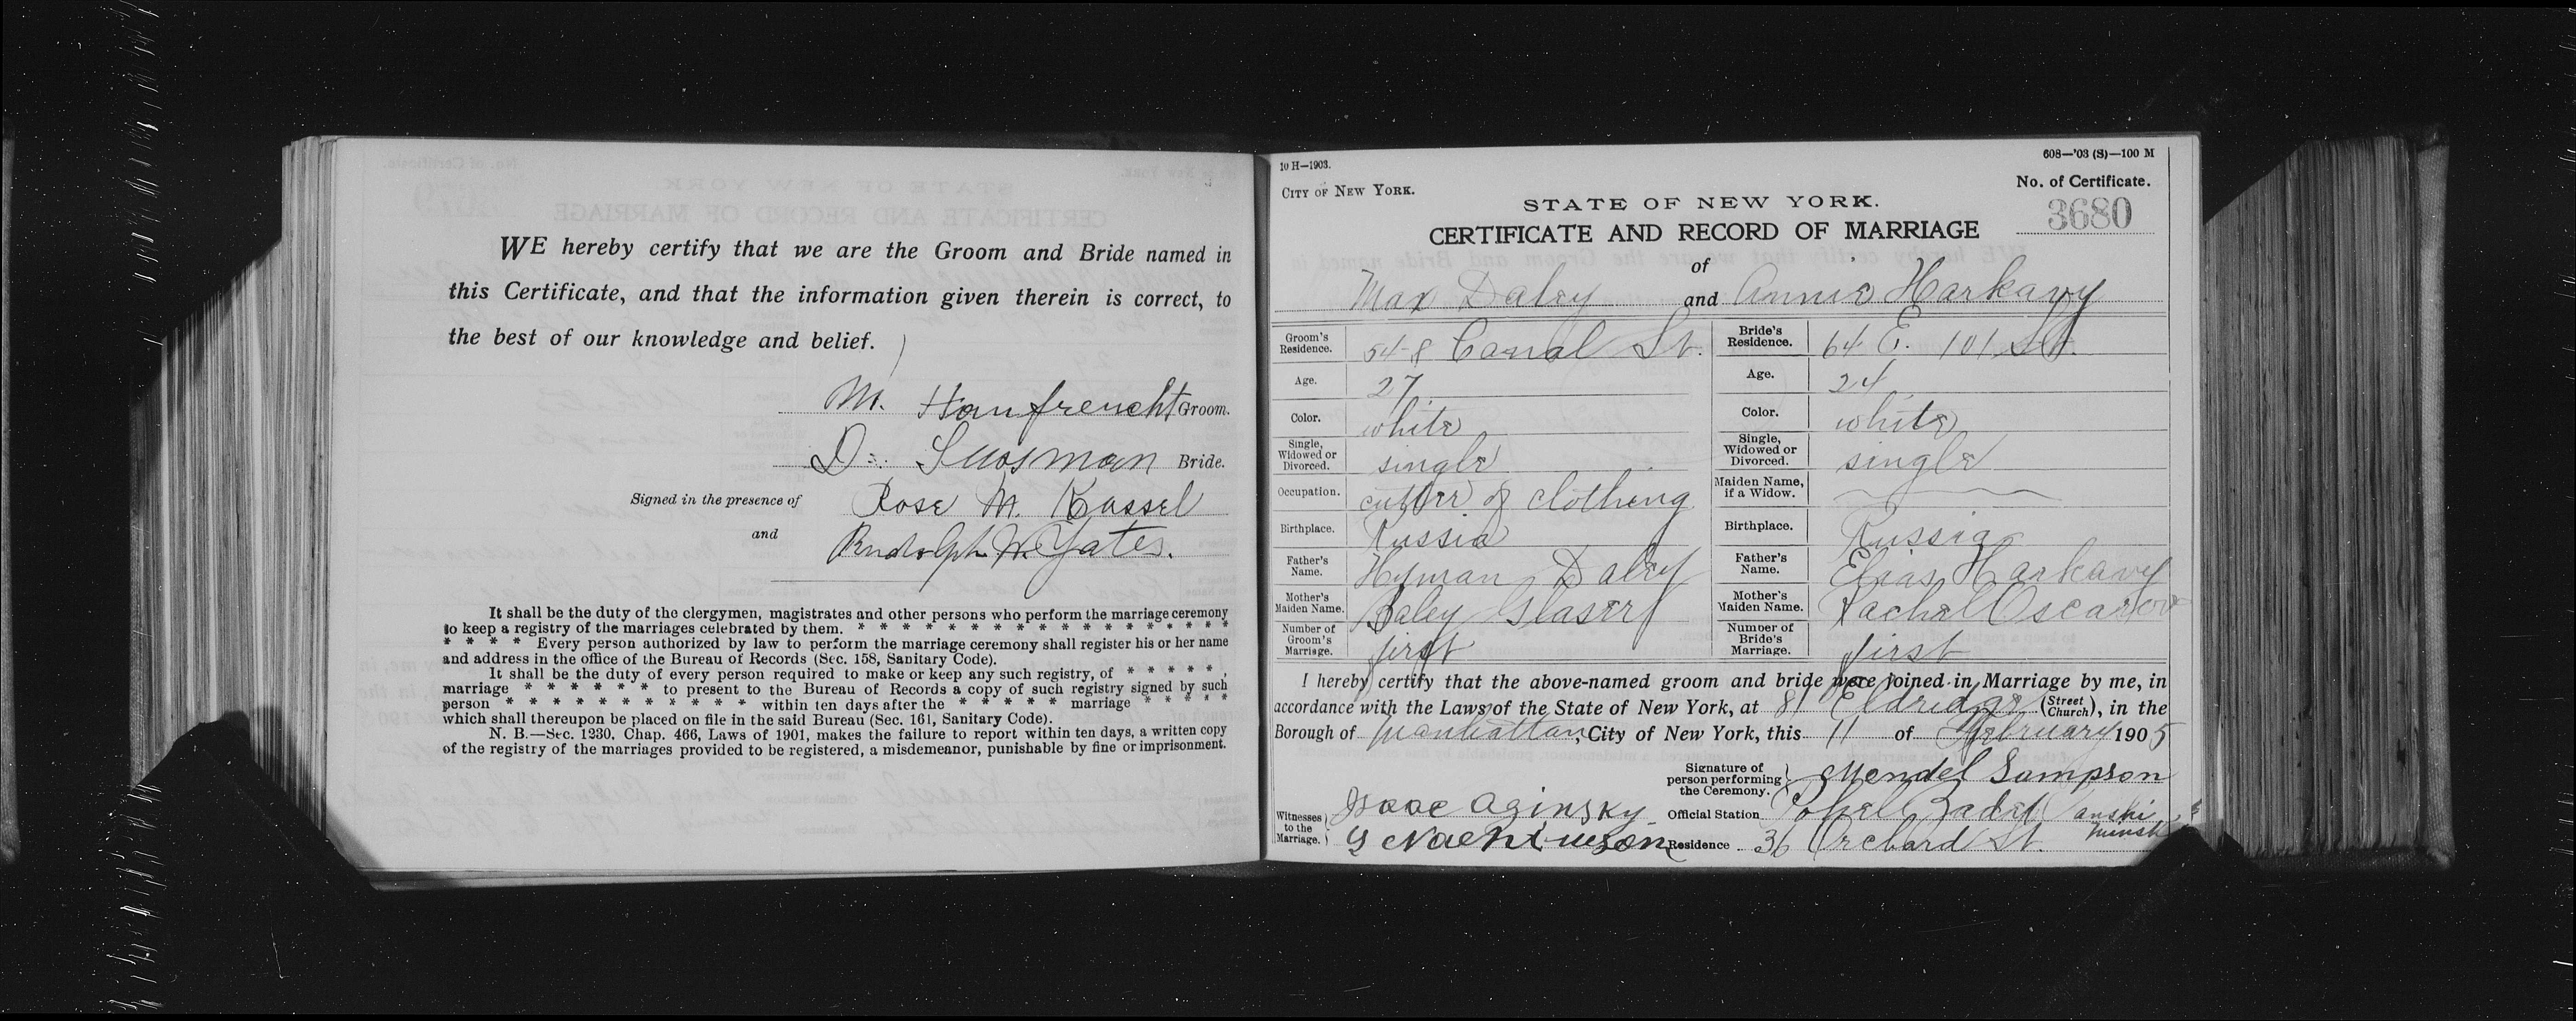 WE hereby certify that we are the Groom and Bride named in
this Certificate, and that the information given therein is correct, to
the best of our knowledge and belief.
M. Hanfrencht Groom.
D. Sussman Bride.
Signed in the presence of Rose M. Kassel
and Rudolph W. Yates.
It shall be the duty of the clergymen, magistrates and other persons who perform the marriage ceremony
to keep a registry of the marriages celebrated by them. * * * * * * * * * * * * * * * * *
* * * * Every person authorized by law to perform the marriage ceremony shall register his or her name
and address in the office of the Bureau of Records (Sec. 158, Sanitary Code).
It shall be the duty of every person required to make or keep any such registry, of * * * * *,
marriage * * * * * * to present to the Bureau of Records a copy of such registry signed by such
person * * * * * * * * * * * within ten days after the * * * * * marriage * * * * *
which shall thereupon be placed on file in the said Bureau (Sec. 161, Sanitary Code).
N. B.—Sec. 1230, Chap. 466, Laws of 1901, makes the failure to report within ten days, a written copy
of the registry of the marriages provided to be registered, a misdemeanor, punishable by fine or imprisonment.
10 H—1903. 608—'03 (S)—100 M
CITY OF NEW YORK. No. of Certificate.
STATE OF NEW YORK. 3680
CERTIFICATE AND RECORD OF MARRIAGE
of
Max Daley and Annie Harkavy
Groom's Residence. 54-8 Canal St. Bride's Residence. 64 E. 101 St.
Age. 27 Age. 24
Color. white Color. white
Single, Widowed or Divorced. single Single, Widowed or Divorced. single
Occupation. cutter of clothing Maiden Name, if a Widow.
Birthplace. Russia Birthplace. Russia
Father's Name. Hyman Daley Father's Name. Elias Harkavy
Mother's Maiden Name. Baley Glaser Mother's Maiden Name. Rachel
Number of Groom's Marriage. first Number of Bride's Marriage. first
I hereby certify that the above-named groom and bride were joined in Marriage by me, in
accordance with the Laws of the State of New York, at 81 Eldridge (Street Church), in the
Borough of Manhattan, City of New York, this 11 of February 1905
Signature of person performing the Ceremony. Mendel Sampson
Witnesses to the Marriage. Isaac Aginsky Official Station anshi minsk
Residence 36 Orchard St.